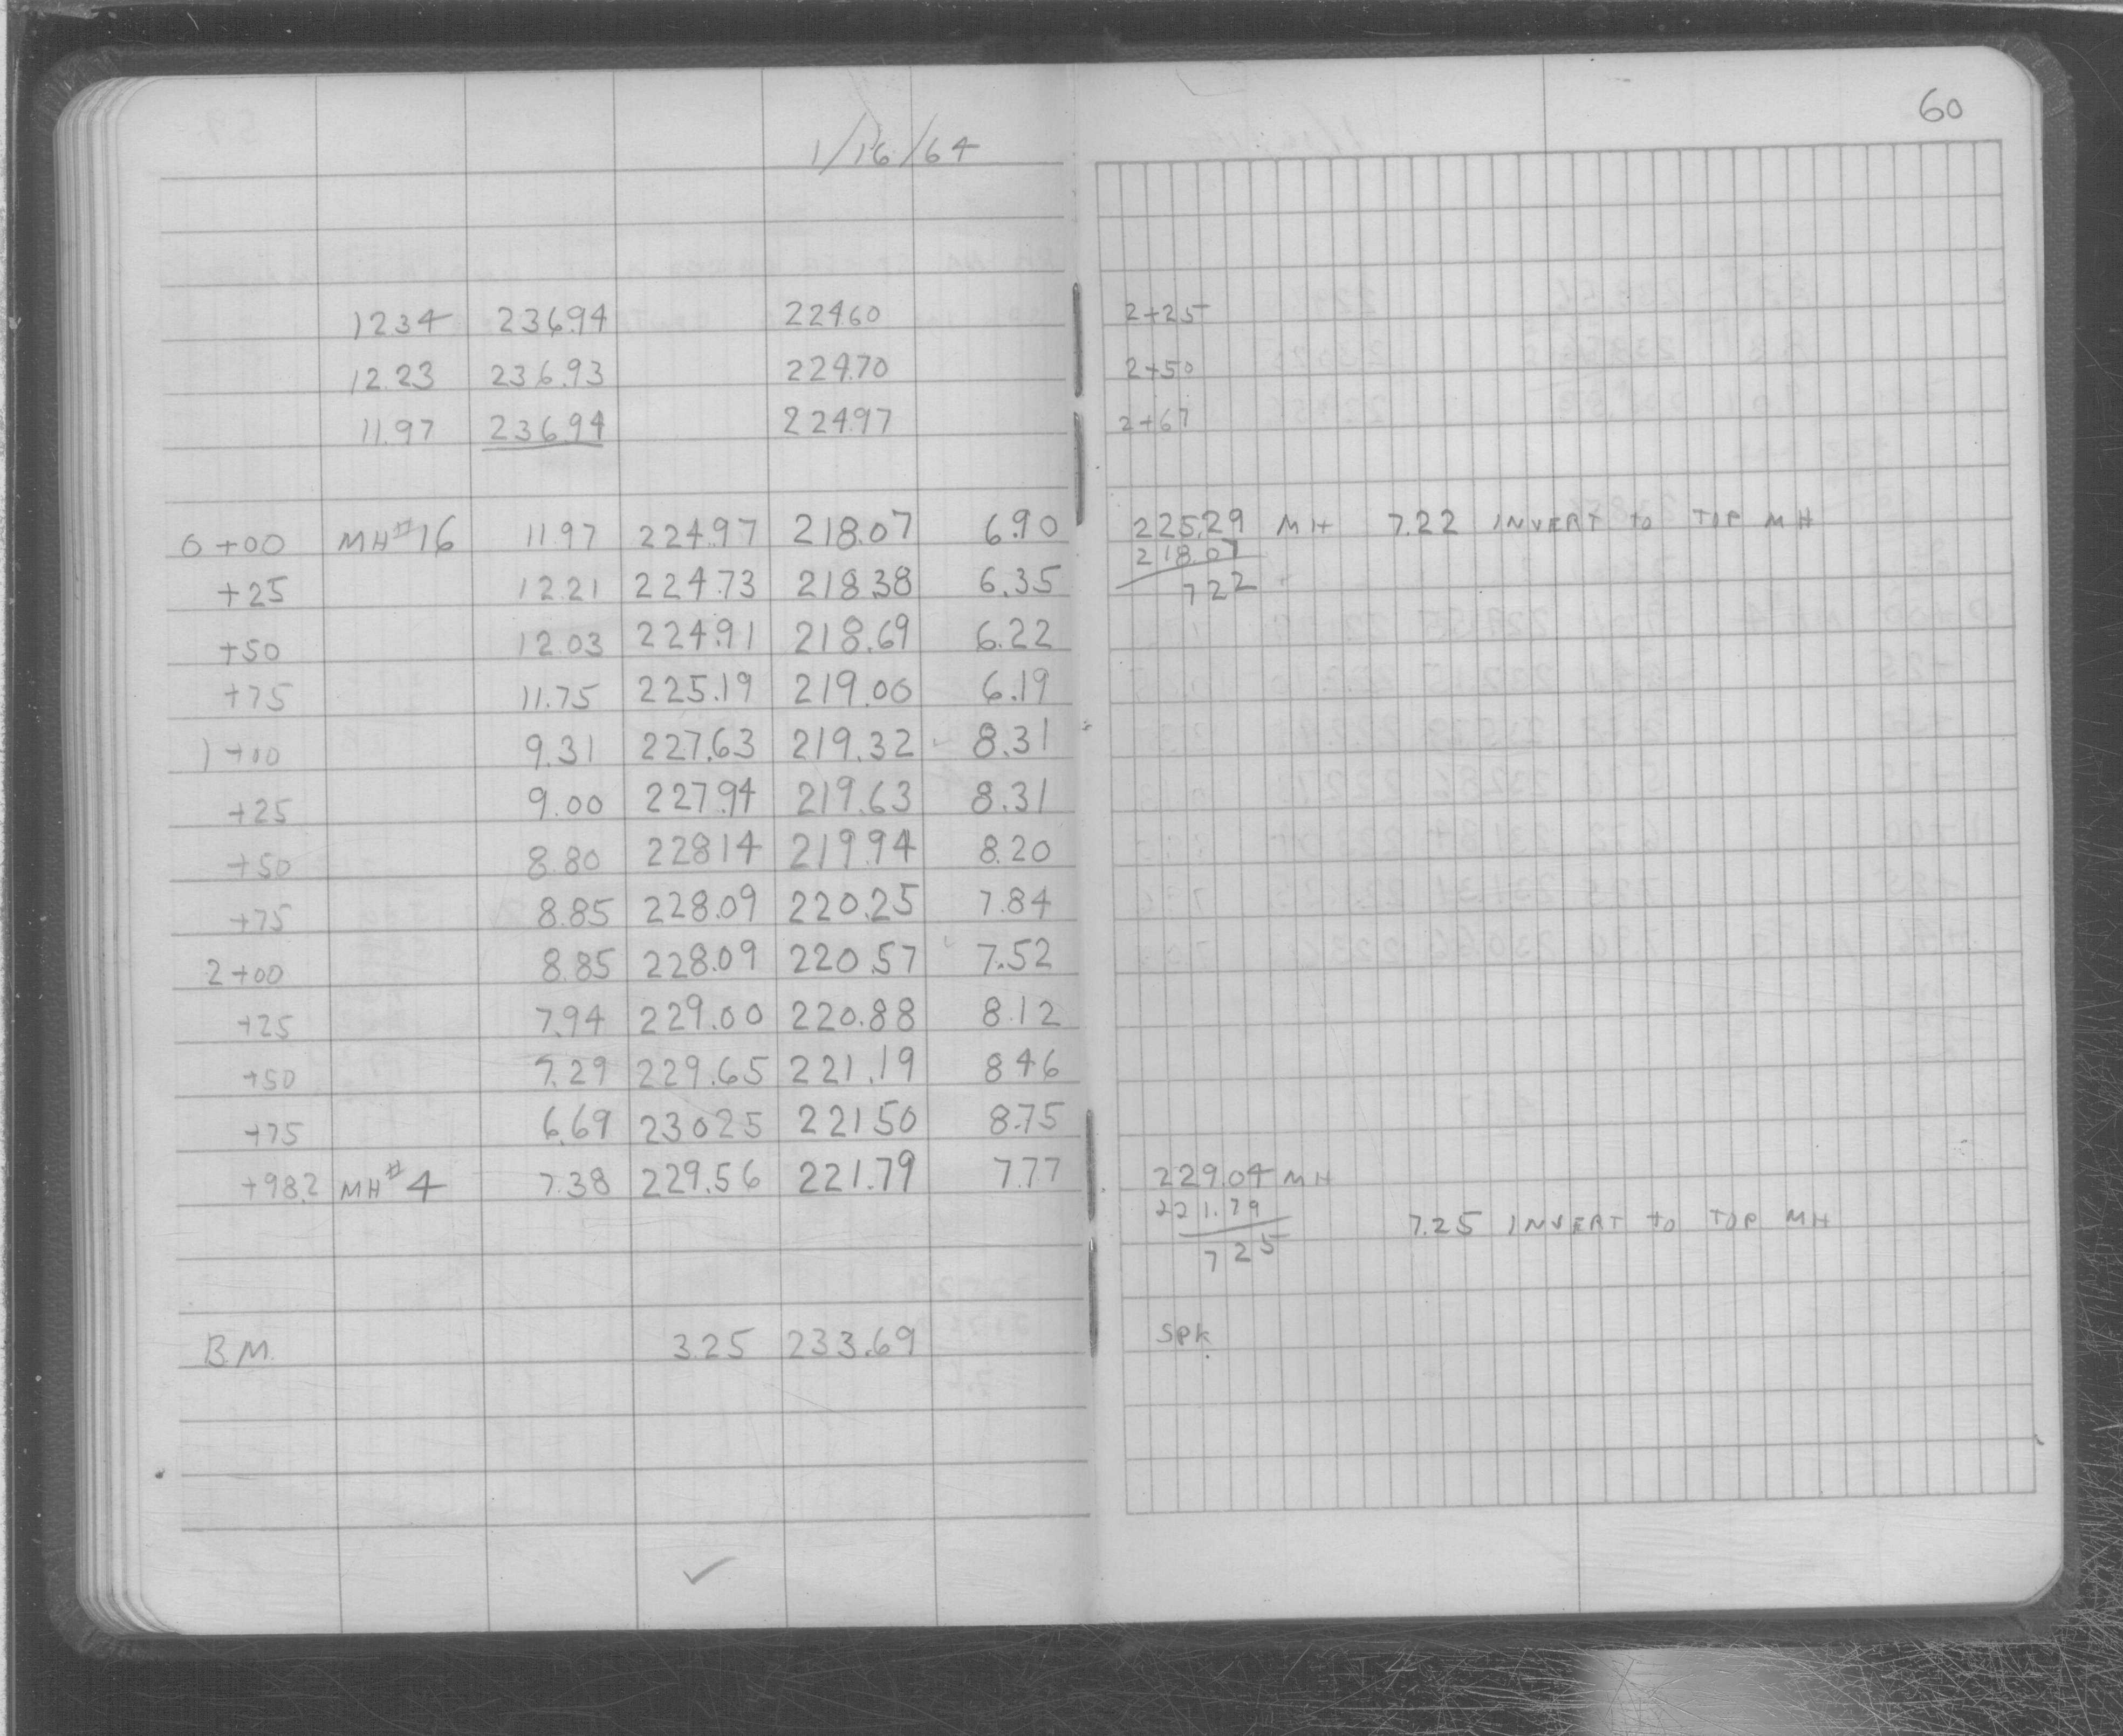 1/16/64
60
1234 23694 22460 2+25
12.23 236.93 22470 2+50
11.97 23694 22497 2+67
0+00 MH#16 11 97 22497 218.07 6.90 225.29 MH 7.22 INVERT to TOP MH
218.07
+25 12.21 224.73 21838 6.35 722
+50 12.03 224.91 218.69 6.22
+75 11.75 225.19 219.00 6.19
1+00 9.31 227.63 219.32 8.31
+25 9.00 22794 219.63 8.31
+50 8.80 22814 219.94 8.20
+75 8.85 228.09 220.25 7.84
2+00 8.85 228.09 220.57 7.52
+25 7.94 229.00 220.88 8.12
+50 7.29 229.65 221.19 846
+75 6.69 23025 22150 8.75
+98.2 MH#4 7.38 229.56 221.79 7.77 229.04 MH
221.79 7.25 INVERT to TOP MH
725
B.M. 3.25 233.69 Spk.